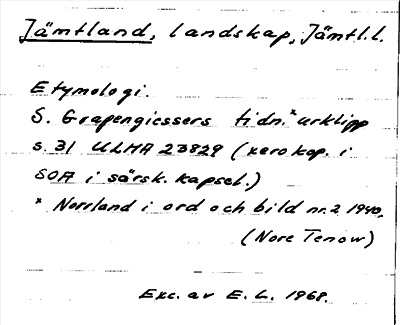 Jämtland, landskap, Jämtl.l.
Etymologi.
S. Grapengiessers tidn.*urklipp
s. 31 ULMA 23829 (xerokop. i
SOA i särsk. kapsel.)
* Norrland i ord och bild nr. 2 1940.
(Nore Tenow)
Exc. av E. L. 1968.